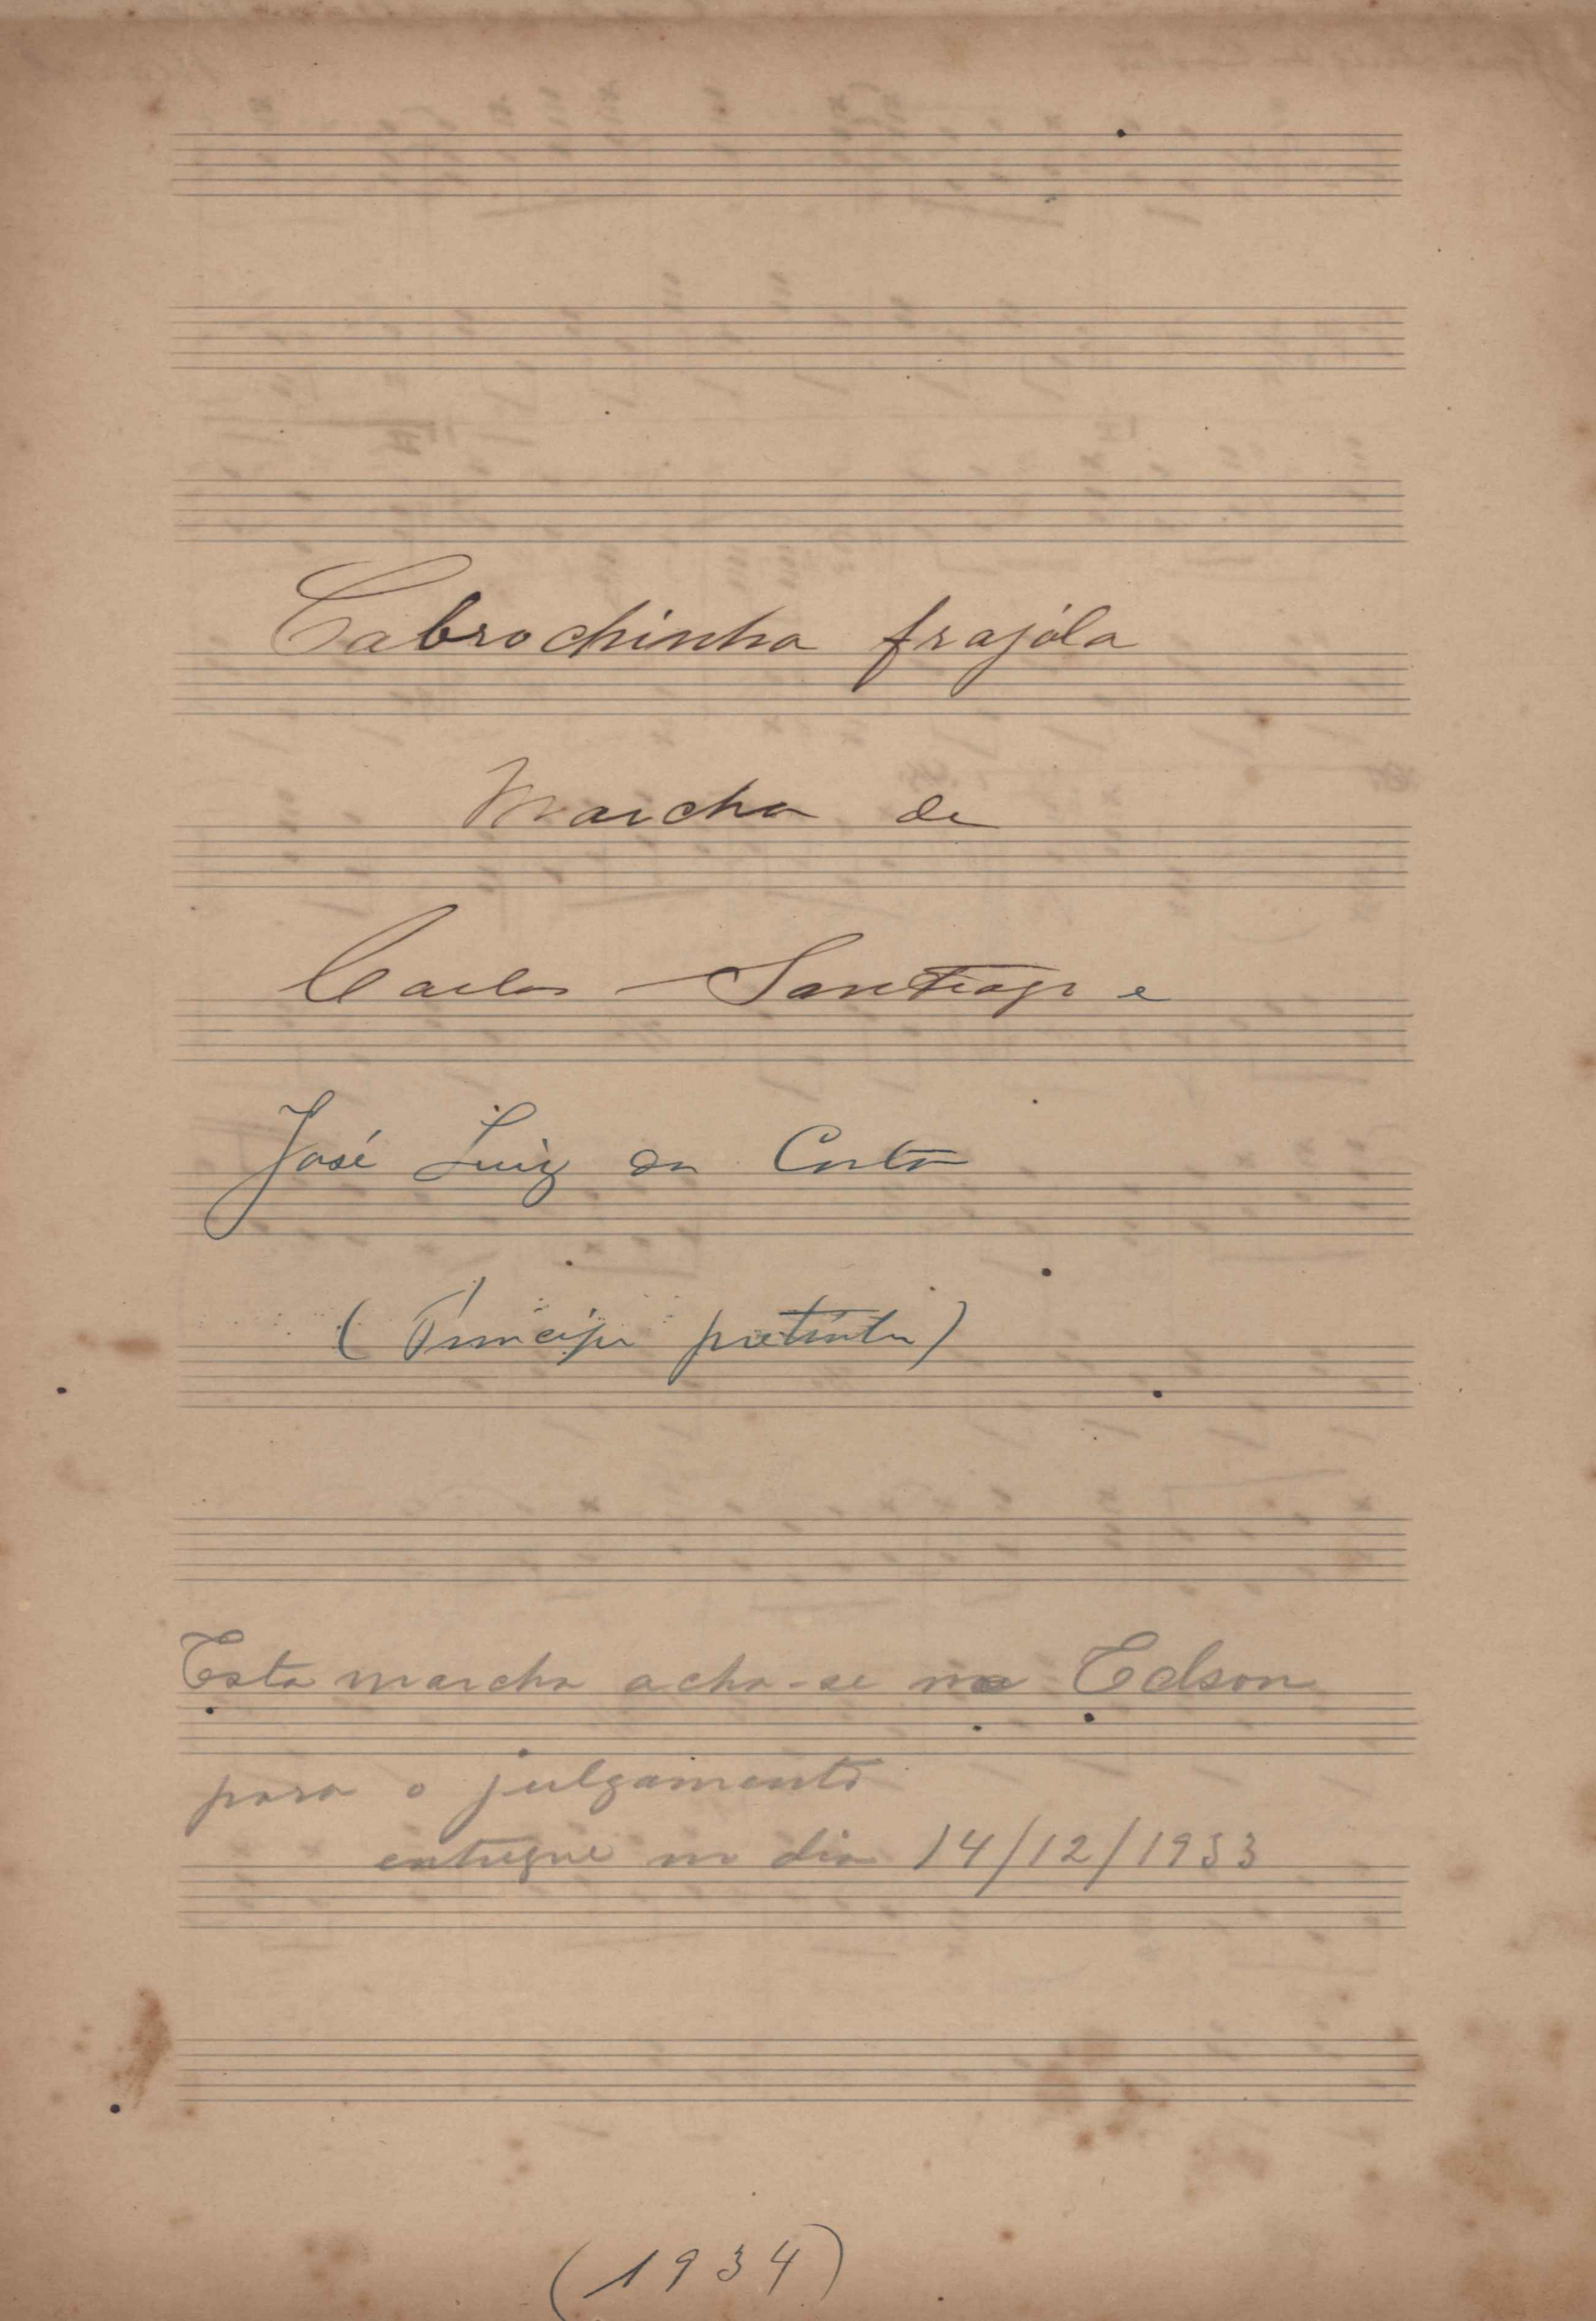 Cabrochinha frajóla
Marcha de
Carlos Santiago e
José Luiz da Costa
(Principe pretinho)
Esta marcha acha-se na Edson
para o julgamento
entregue no dia 14/12/1933
(1934)